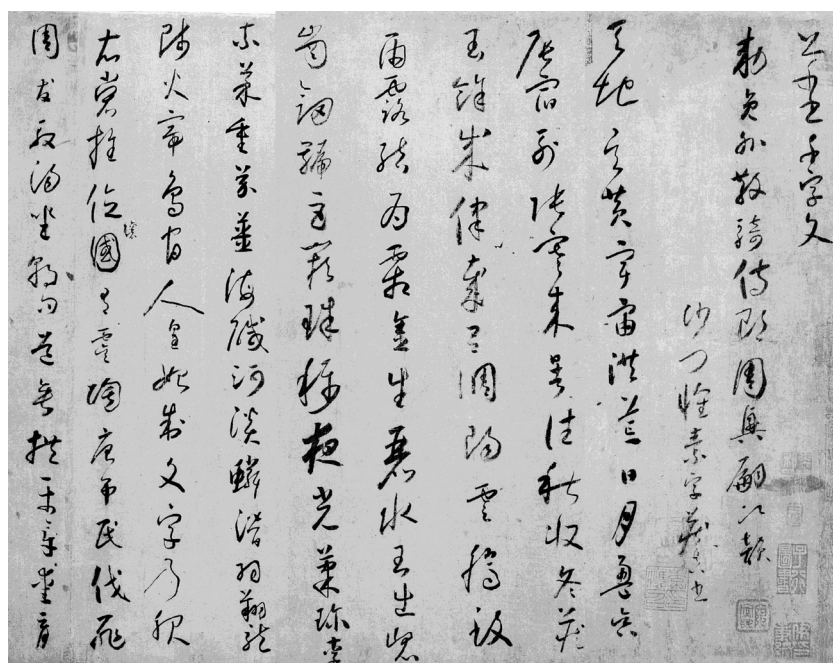 千字文
敕員外散騎侍郎周興嗣次韻
沙門懷素字藏真書
天地玄黃宇宙洪荒日月盈昃
辰宿列張寒來暑往秋收冬藏
閏餘成律歲呂調陽雲騰致
雨露結為霜金生麗水玉出崑
崗劍號巨闕珠稱夜光菓珍李
柰菜重芥薑海鹹河淡鱗潛羽翔龍
師火帝鳥官人皇始制文字乃服
衣裳推位讓國有虞陶唐弔民伐罪
周發殷湯坐朝問道垂拱平章愛育